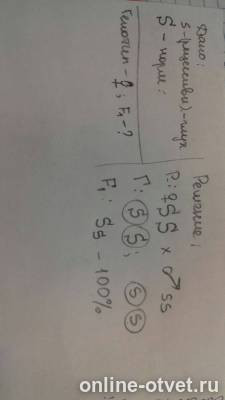 Дано:
s - (рецессивн) - глух
S - норм.
Генотип - ♀; F₁ - ?
Решение:
P: ♀SS × ♂ss
Г: S S; s s
F₁: Ss - 100%
online-otvet.ru